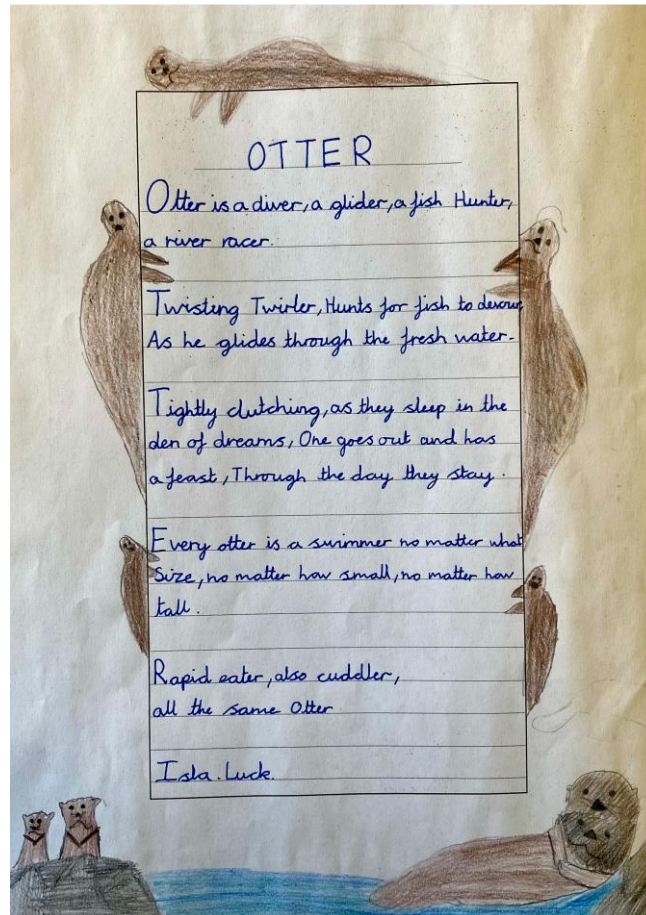 OTTER
Otter is a diver, a glider, a fish Hunter,
a river racer.
Twisting Twirler, Hunts for fish to devour,
As he glides through the fresh water.
Tightly clutching, as they sleep in the
den of dreams, One goes out and has
a feast, Through the day they stay.
Every otter is a swimmer no matter what
Size, no matter how small, no matter how
tall.
Rapid eater, also cuddler,
all the same Otter
Isla. Luck.